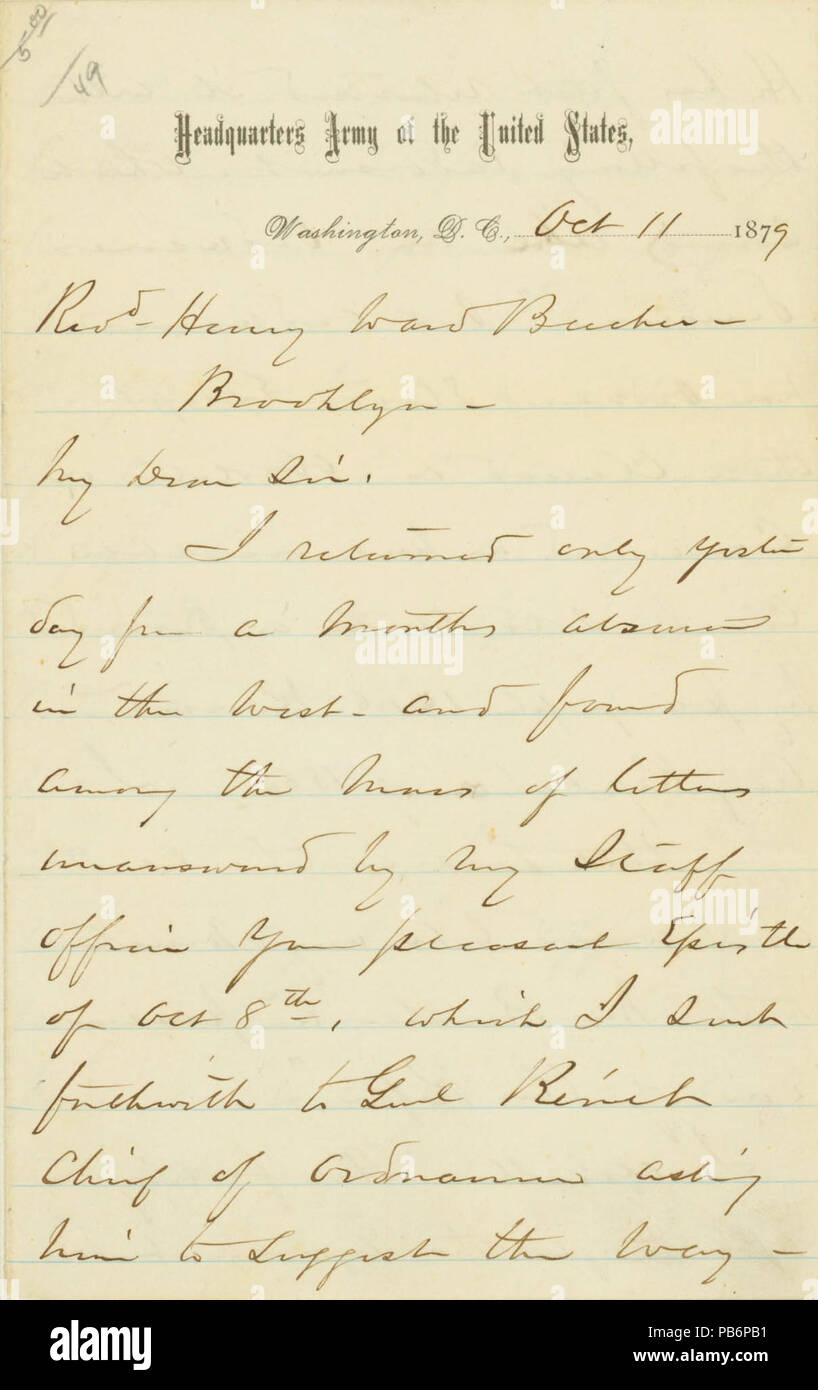 5 00
/49
Headquarters Army of the United States,
Washington, D. C., Oct 11 1879
Revd. Henry Ward Beecher -
Brooklyn -
My Dear Sir.
I returned only yester
day from a months absence
in the West - and found
among the mass of letters
unanswered by my Staff
officer your pleasant Epistle
of Oct 8th, which I sent
forthwith to Genl Benét
Chief of Ordnance asking
him to suggest the way -
alamy
Image ID: PB6PB1
www.alamy.com